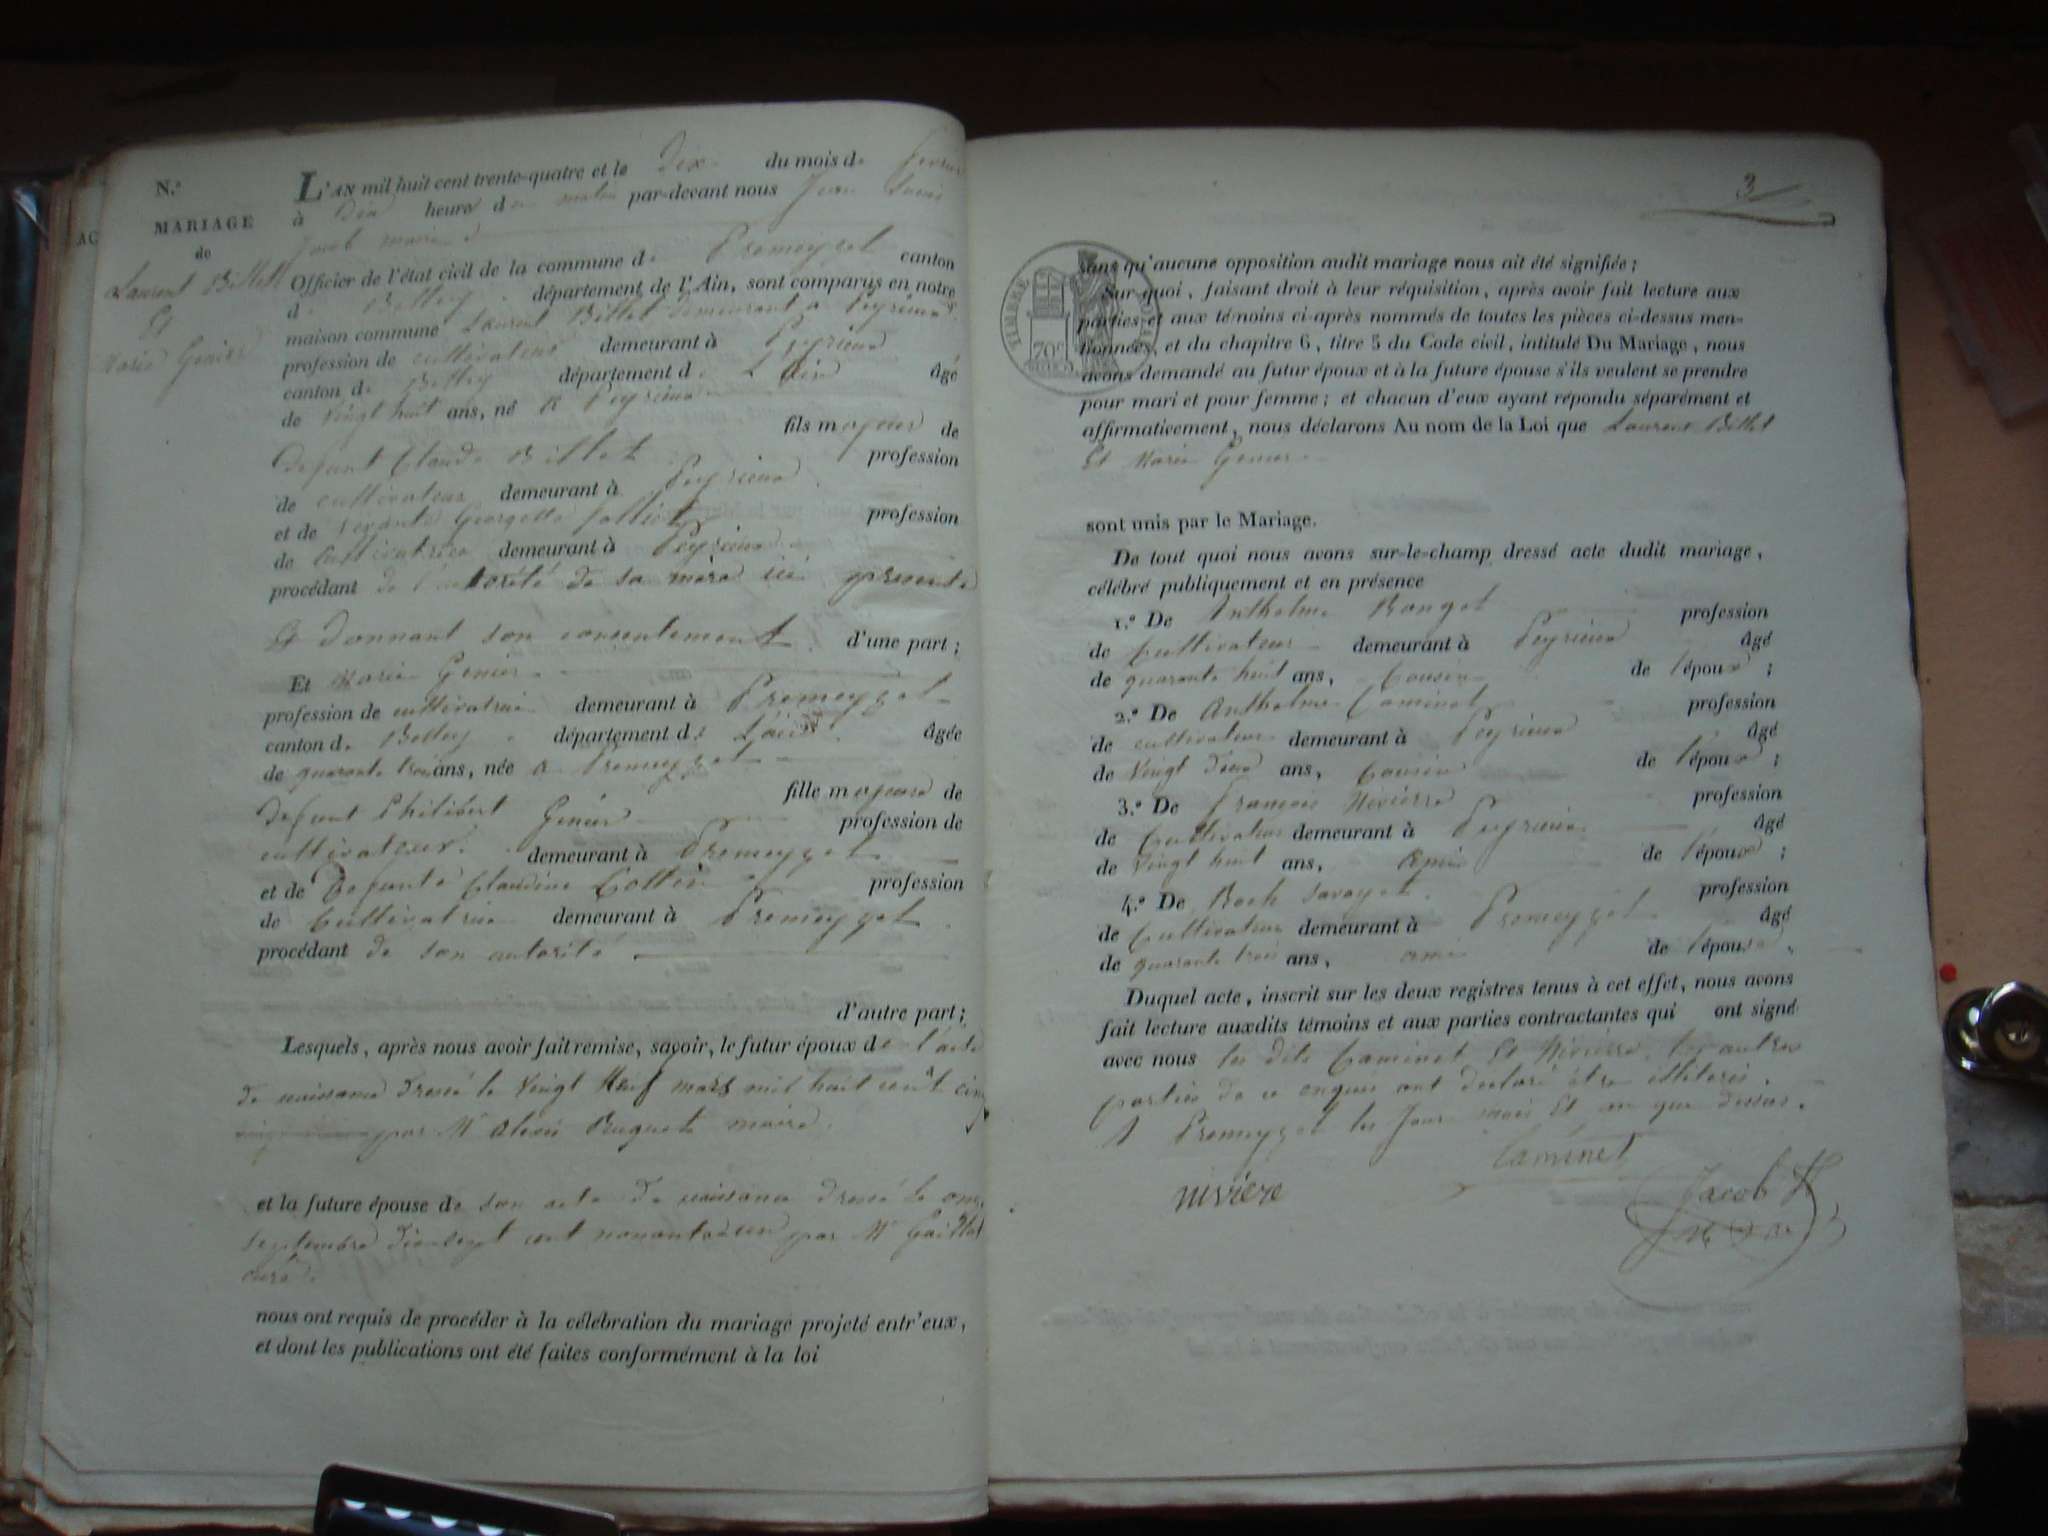 N.º
MARIAGE
de
Laurent Billet
Et
Marie Genier
AC
L'AN mil huit cent trente-quatre et le Dix du mois de fevrier
à Dix heure du matin par-devant nous Jean Louis
Jacob maire
Officier de l'état civil de la commune de Premeyzel canton
de Belley département de l'Ain, sont comparus en notre
maison commune Laurent Billet demeurant a Peyrieux
profession de cultivateur demeurant à Peyrieux
canton de Belley département de L'Ain âgé
de vingt huit ans, né a Peyrieux
fils majeur de
defunt Claude Billet profession
de cultivateur demeurant à Peyrieux
et de vivante Georgette profession
de Cultivatrice demeurant à Peyrieux
procédant de l'autorité de sa mère ici presente
Et donnant son consentement d'une part ;
Et Marie Genier
profession de cultivatrice demeurant à Premeyzel
canton de Belley département de L'ain âgée
de quarante trois ans, née a Premeyzel
fille majeure de
defunt Philibert Genier profession de
cultivateur demeurant à Premeyzel
et de Defunte Claudine Collin profession
de Cultivatrice demeurant à Premeyzel
procédant de son autorité
d'autre part ;
Lesquels, après nous avoir fait remise, savoir, le futur époux de l'acte
de naissance dressé le vingt Neuf mars mil huit cent cinq
par Mr Alexis Buquet maire.
et la future épouse de son acte de naissance dressé le onze
septembre dix sept cent nonante un par Mr Gaillot
curé.
nous ont requis de procéder à la célébration du mariage projeté entr'eux,
et dont les publications ont été faites conformément à la loi
3
TIMBRE ROYAL
70c
sans qu'aucune opposition audit mariage nous ait été signifiée ;
Sur quoi, faisant droit à leur réquisition, après avoir fait lecture aux
parties et aux témoins ci-après nommés de toutes les pièces ci-dessus men-
tionnées, et du chapitre 6, titre 5 du Code civil, intitulé Du Mariage, nous
avons demandé au futur époux et à la future épouse s'ils veulent se prendre
pour mari et pour femme ; et chacun d'eux ayant répondu séparément et
affirmativement, nous déclarons Au nom de la Loi que Laurent Billet
Et Marie Genier
sont unis par le Mariage.
De tout quoi nous avons sur-le-champ dressé acte dudit mariage,
célébré publiquement et en présence
1.º De Anthelme Ronget profession
de Cultivateur demeurant à Peyrieux âgé
de quarante huit ans, Cousin de l'époux ;
2.º De Anthelme Caminet profession
de cultivateur demeurant à Peyrieux âgé
de Vingt deux ans, Cousin de l'époux ;
3.º De François Nivierre profession
de Cultivateur demeurant à Peyrieux âgé
de vingt huit ans, Ami de l'époux ;
4.º De Roch Savoyet profession
de Cultivateur demeurant à Premeyzel âgé
de quarante trois ans, ami de l'épouse.
Duquel acte, inscrit sur les deux registres tenus à cet effet, nous avons
fait lecture auxdits témoins et aux parties contractantes qui ont signé
avec nous les dits Caminet Et Nivierre, les autres
parties de ce enquis ont declaré être illiterés.
A Premeyzel les Jour mois Et an que dessus.
Caminet
niviere
Jacob